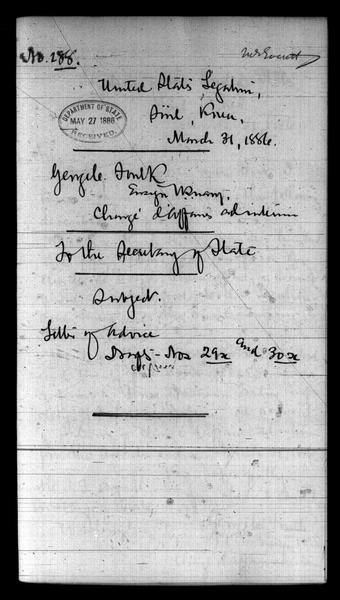 No. 288.
Mr Everett
United States Legation,
Söul, Korea,
March 31, 1886.
DEPARTMENT OF STATE
MAY 27 1886
RECEIVED
George C. Foulk
Ensign U.S. Navy,
Chargé d'Affaires ad interim
To the Secretary of State
Subject.
Letter of Advice
Drafts - Nos 29x and 30x